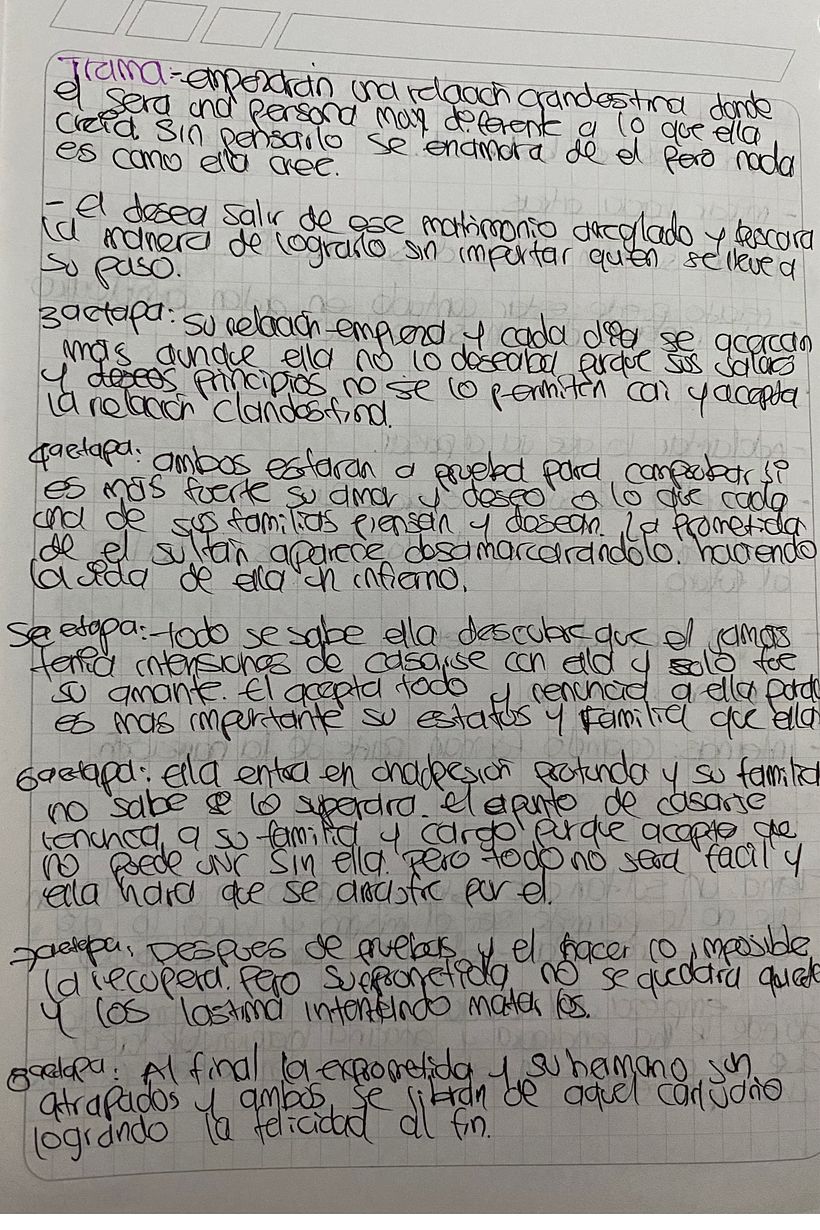 Trama:- empezarán una relación clandestina donde
el sera una persona muy diferente a lo que ella
creia sin pensarlo se enamora de el pero nada
es como ella cree.
- el desea salir de ese matrimonio arreglado y buscara
la manera de lograrlo sin importar quien se lleve a
su paso.
3aetapa: su relación empieza y cada día se acercan
mas aunque ella no lo deseaba porque sus valores
y deseos principios no se lo permiten cai y acepta
la relación clandestina.
4aetapa: ambos estaran a prueba para comprobar si
es más fuerte su amor y deseo a lo que cada
una de sus familias piensan y desean. La prometida
de el sultan aparece desamarcarandolo. haciendo
la vida de ella un infierno.
5a etapa:- todo se sabe ella descubre que el jamas
tenia intensiones de casarse con ella y solo fue
su amante. El acepta todo y renuncia a ella
es mas importante su estatus y familia que ella
6aetapa: ella entra en depresión profunda y su familia
no sabe si lo superara. el apunto de casarse
renuncia a su familia y cargo porque acepto que
no puede vivir sin ella. pero todo no sera facil y
ella hara que se arrastre por el.
7aetapa: Despues de pruebas y el hacer lo imposible
la recupera. Pero su exprometida no se quedara
y los lastima intentando matarlos.
8aetapa: Al final la exprometida y su hermano son
atrapados y ambos se libran de aquel
logrando la felicidad al fin.